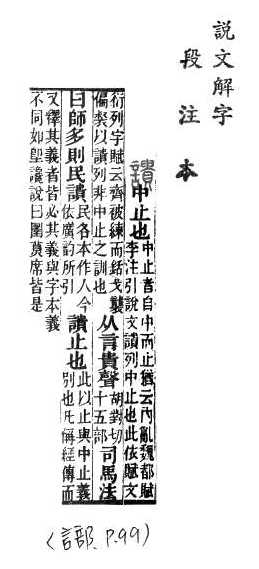 說文解字
段注本
䜋中止也中止者自中而止猶云內亂魏都賦
李注引說文䜋列中止也此依賦文
衍列字賦云齊被練而銛戈襲
偏裻以䜋列非中止之訓也
从言貴聲胡對切
十五部
司馬法
曰師多則民䜋民各本作人今
依廣韵所引
䜋止也此以止與中止義
別也凡偁經傳而
又釋其義者皆必其義與字本義
不同如堲讒說曰圛莫席皆是
(言部, P.99)